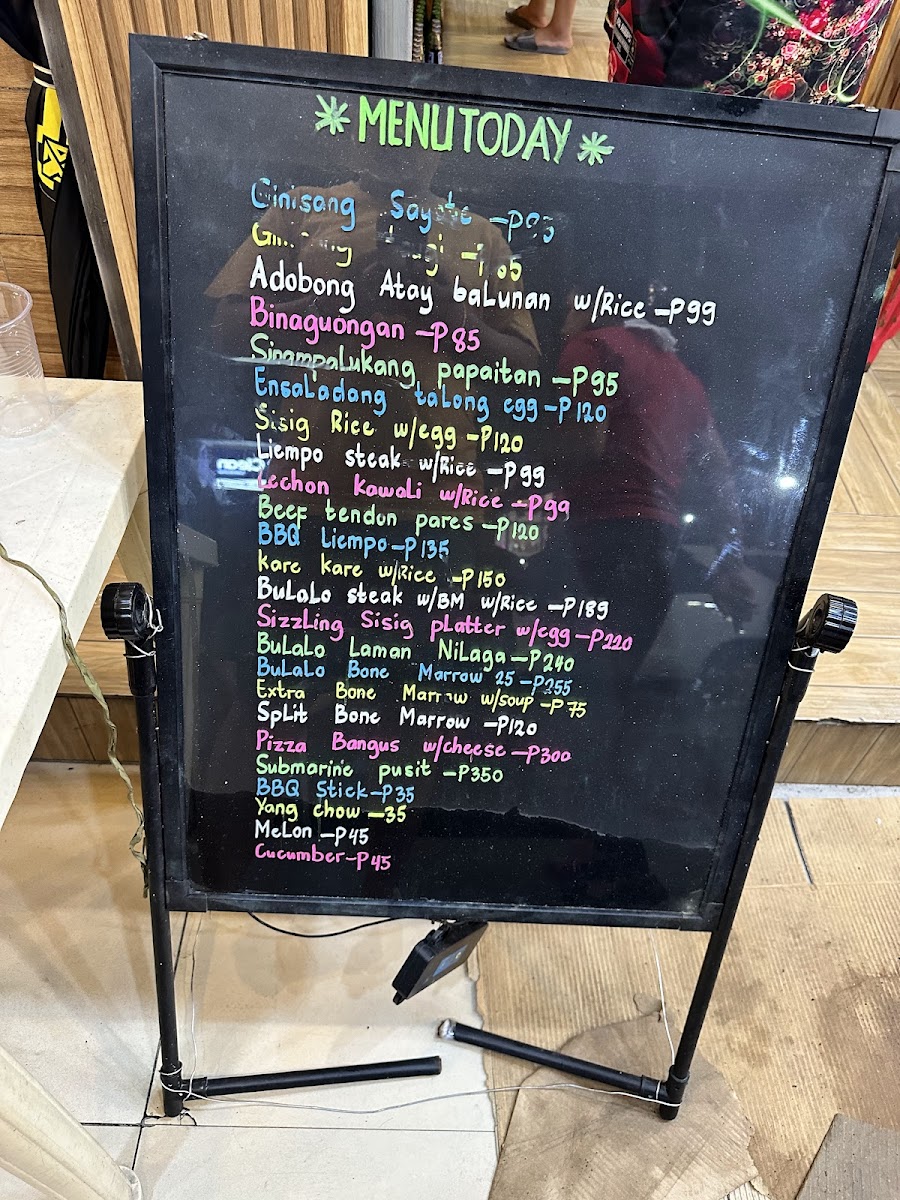 MENU TODAY
Ginisang Sayote
Adobong Atay baLunan w/Rice -P99
Binaguongan -P85
Sinampalukang papaitan -P95
EnsaLadang taLong egg -P120
Sisig Rice w/egg -P120
Liempo steak w/Rice -P99
Lechon KawaLi w/Rice -P99
Beef tendon pares -P120
BBQ Liempo -P135
Kare kare w/Rice -P150
BuLaLo steak w/BM w/Rice -P189
SizzLing Sisig pLatter w/egg -P220
BuLaLo Laman NiLaga -P240
BuLaLo Bone Marrow 25 -P255
Extra Bone Marrow w/soup -P75
SpLit Bone Marrow -P120
Pizza Bangus w/cheese -P300
Submarine pusit -P350
BBQ Stick -P35
Yang chow -35
MeLon -P45
Cucumber -P45